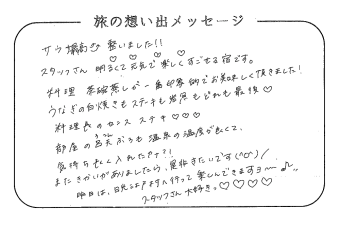 旅の想い出メッセージ
サウナ最高♨ 整いました!!
スタッフさん 明るくて元気で楽しくすごせる宿です。
料理 茶碗蒸しが一番印象的でお美味しく頂きました!
うなぎの白焼きもステーキも岩魚もどれも最後♡
料理長のセンス ステキ♡♡♡
部屋の露天ぶろも温泉の温度が良くて、
気持ち良く入れたヤァ?!
またきかいがありましたら、是非きたいです(^o^)/
明日は、 へ行って楽しんできますヨ〜♪
スタッフさん大好き。♡♡♡♡